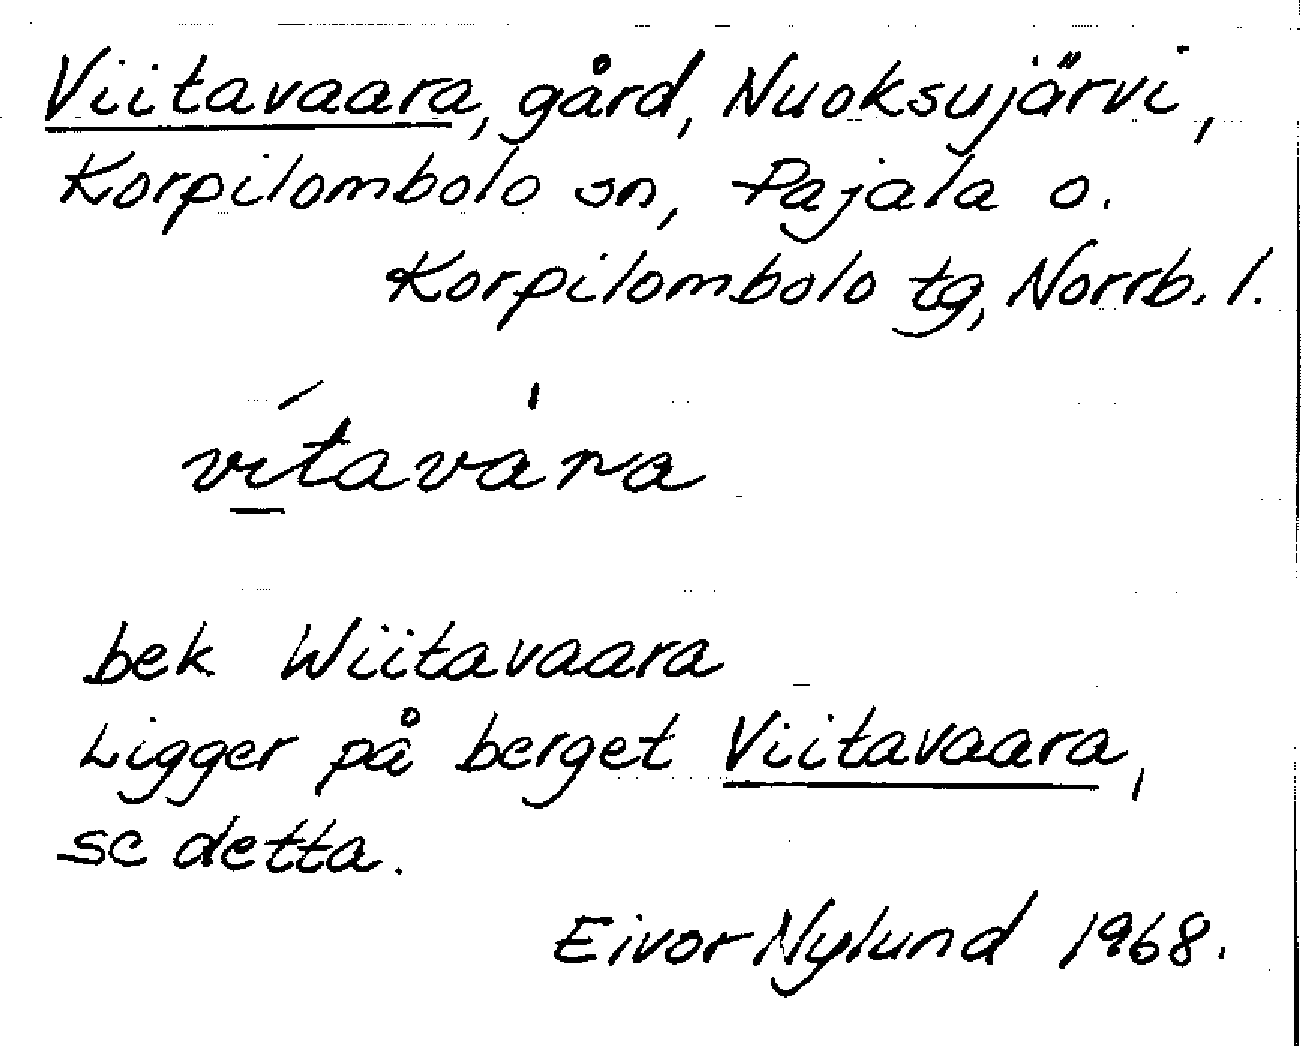 Viitavaara, gård, Nuoksujärvi,
Korpilombolo sn, Pajala o.
Korpilombolo tg, Norrb. l.
ví̱tavàra
bek Wiitavaara
Ligger på berget Viitavaara,
se detta.
Eivor Nylund 1968.